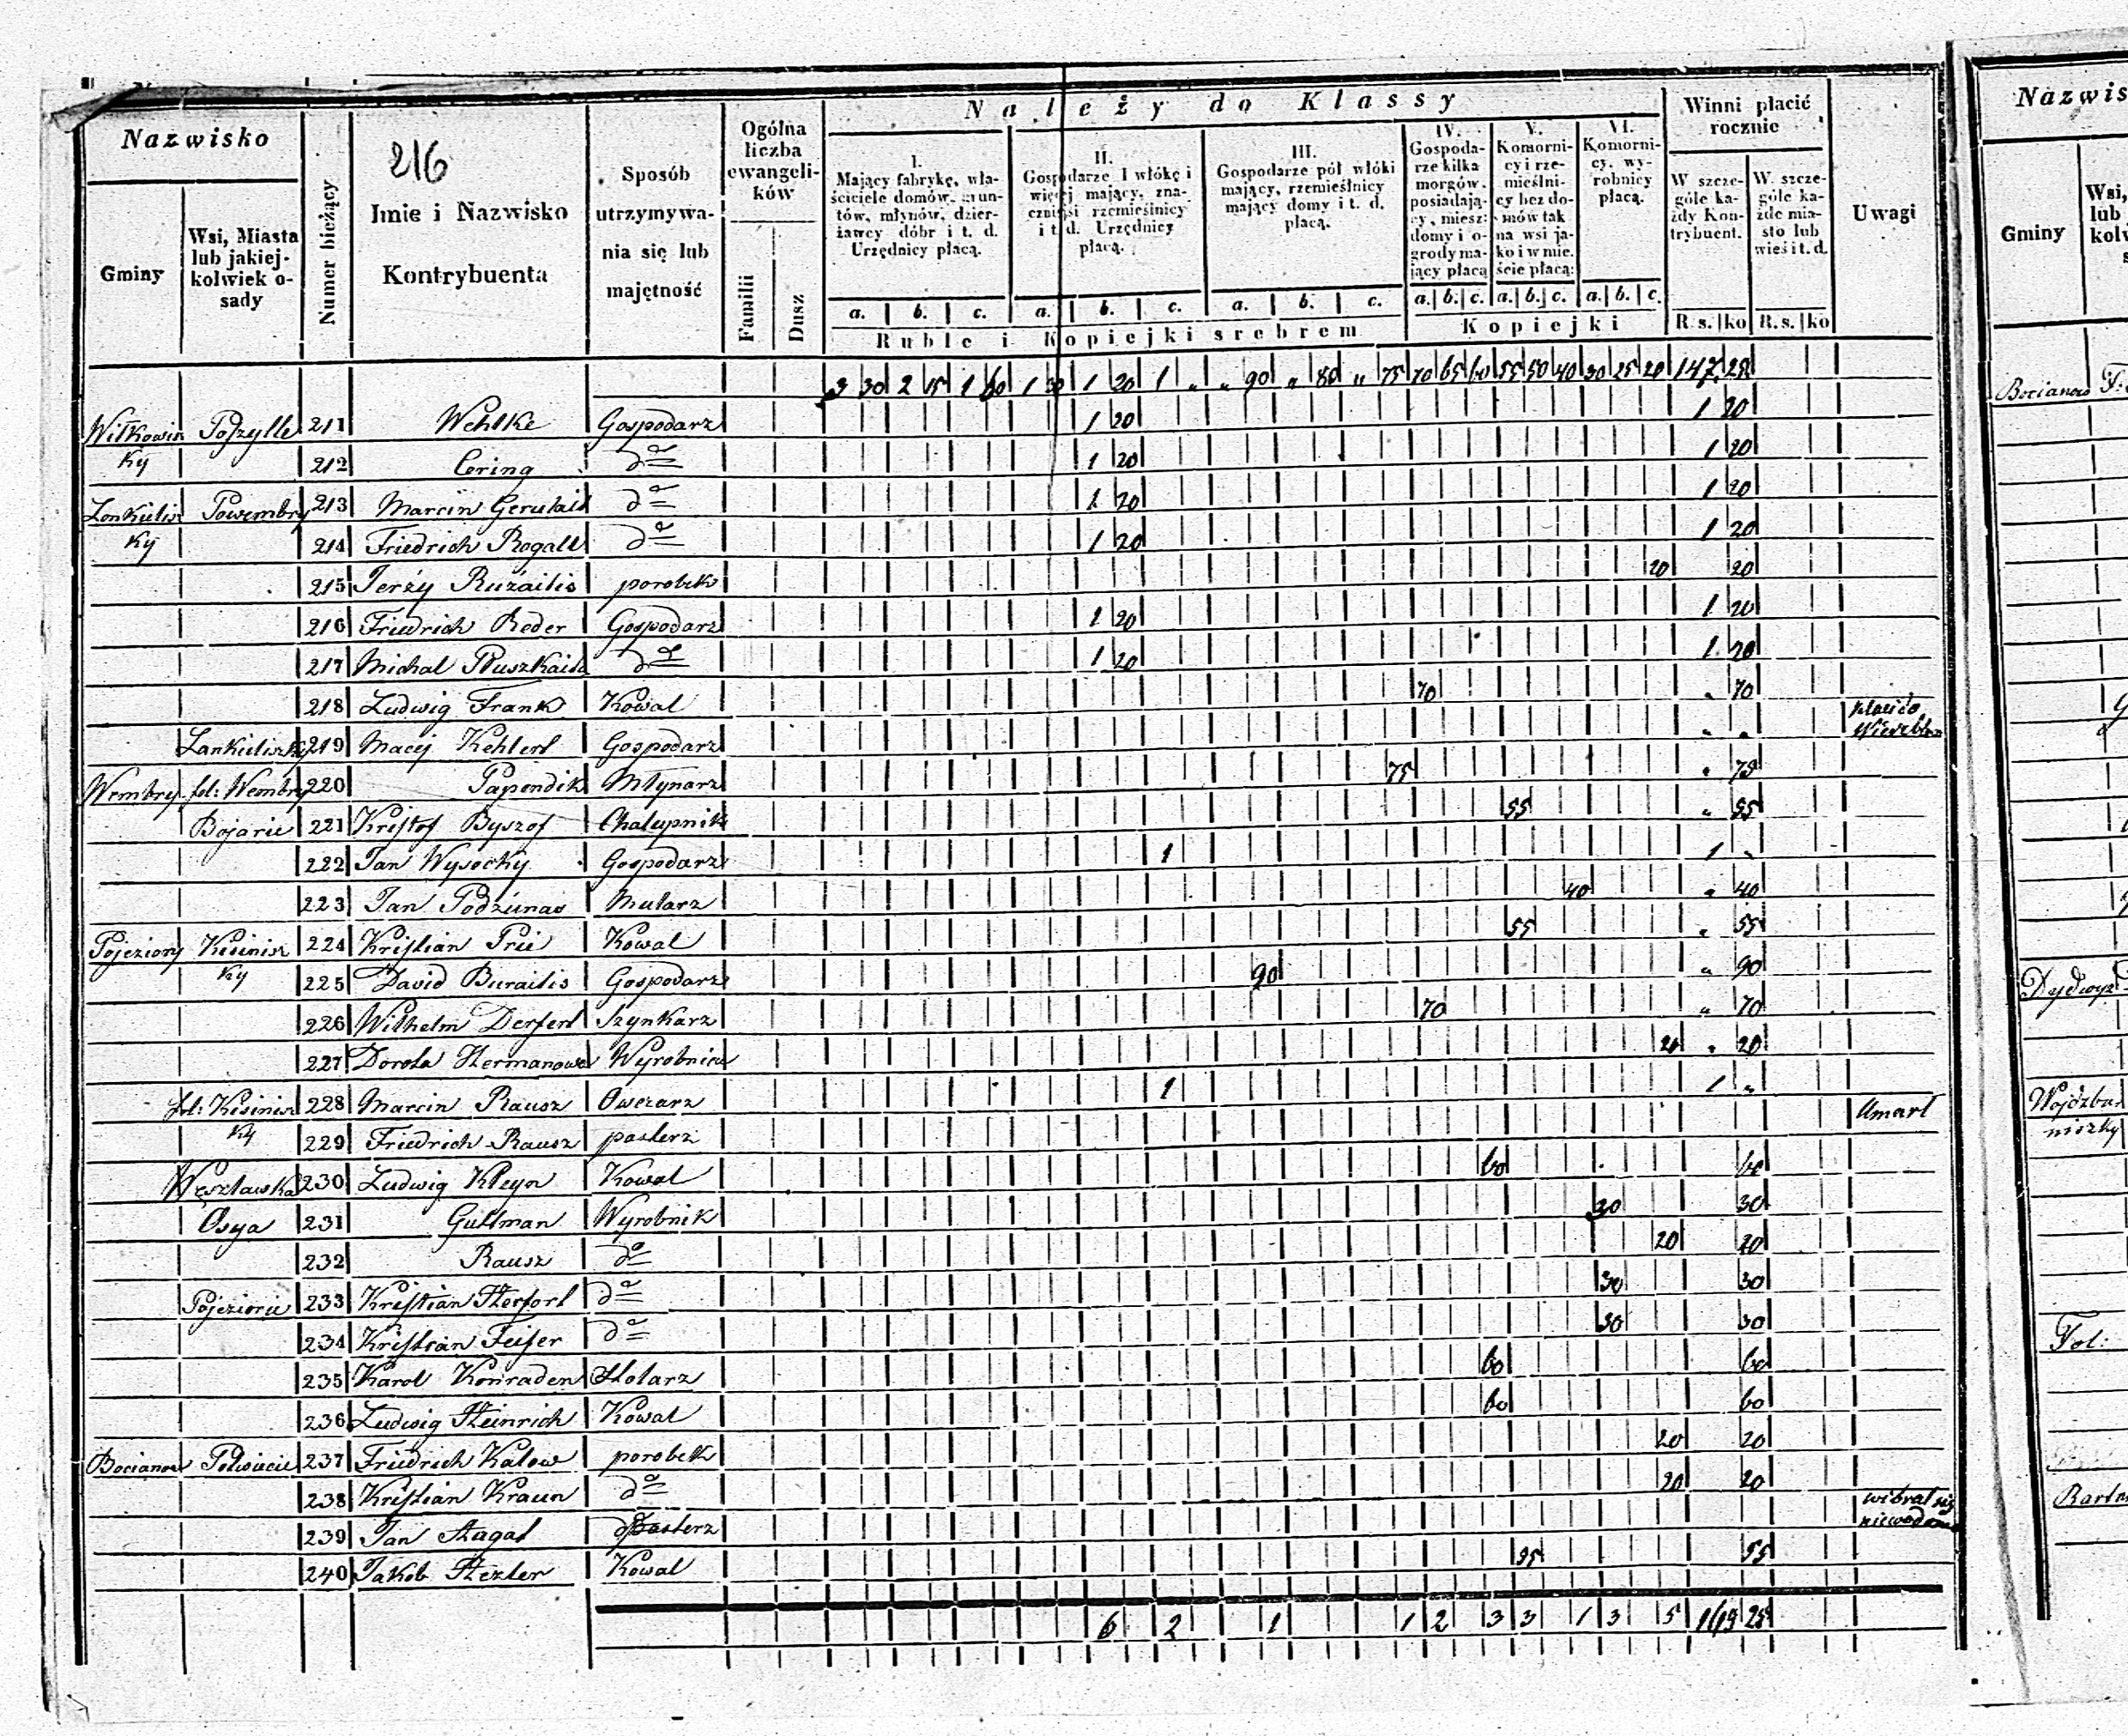 Nazwisko
Gminy
Wsi, Miasta lub jakiej-kolwiek o-sady
Numer bieżący
216
Imie i Nazwisko Kontrybuenta
Sposób utrzymywa-nia się lub majętność
Ogólna liczba ewangeli-ków
Familii
Dusz
Należy do Klassy
I. Mający fabrykę, wła-ściciele domów, grun-tów, młynów, dzier-żawcy dóbr i t. d. Urzędnicy płacą.
II. Gospodarze 1 włókę i więcej mający, zna-czniejsi rzemieślnicy i t. d. Urzędnicy płacą.
III. Gospodarze pół włóki mający, rzemieślnicy mający domy i t. d. płacą.
IV. Gospoda-rze kilka morgów posiadają-cy, miesz: domy i o-grody ma-jący płacą
V. Komorni-cy i rze-mieślni-cy bez do-mów tak na wsi ja-ko i w mie-ście płacą:
VI. Komorni-cy, wy-robnicy płacą.
Winni płacić rocznie
W szcze-góle ka-żdy Kon-trybuent.
W szcze-góle ka-żde mia-sto lub wieś i t. d.
Uwagi
a. b. c. a. b. c. a. b. c. a. b. c. a. b. c. a. b. c.
Ruble i Kopiejki srebrem Kopiejki R. s. ko R. s. ko
3 30 2 15 1 60 1 30 1 20 1 „ „ 90 „ 80 „ 75 70 65 60 55 50 40 30 25 20 147 28
Witkowisz Pojzylle 211 Wehlke Gospodarz 1 20 1 20
ky 212 Cering do 1 20 1 20
Lonkielisz Powembry 213 Marcin Gerulait do 1 20 1 20
ky 214 Friedrich Rogall do 1 20 1 20
215 Jerży Ruzaitis porobek 20 20
216 Friedrich Reder Gospodarz 1 20 1 20
217 Michal Pluszkait do 1 20 1 20
218 Ludwig Frank Kowal 70 „ 70
Lankieliszky 219 Maciej Kehlert Gospodarz „ „
Wembry fol: Wembry 220 Papendik Młynarz 75 „ 75
Bojarie 221 Kristof Byszof Chalupnik 55 „ 55
222 Jan Wysocky Gospodarz 1 1 „
223 Jan Podziunas Mularz 40 „ 40
Pojeziory Kisinisz 224 Kristian Prie Kowal 55 „ 55
ky 225 David Buraitis Gospodarz 90 „ 90
226 Wilhelm Derfert Szynkarz 70 „ 70
227 Dorota Hermanowa Wyrobnica 20 „ 20
fol: Kisinisz 228 Marcin Rausz Owczarz 1 1 „
ky 229 Friedrich Rausz pasterz Umarl
230 Ludwig Kleyn Kowal 60 60
Osya 231 Gutman Wyrobnik 30 30
232 Rausz do 20 20
Pojeziorie 233 Kristian Herfort do 30 30
234 Kristian Feifer do 30 30
235 Karol Konraden Stolarz 60 60
236 Ludwig Heinrich Kowal 60 60
Bocianow 237 Friedrich Kalow porobek 20 20
238 Kristian Kraun do 20 20
239 Jan Hagat pasterz wibral się niewodomo
240 Jakob Hezler Kowal 55 55
6 2 1 1 2 3 3 1 3 5
Nazwis
Gminy
Wsi, lub kolw
Bocianow
Wojdzbu
niszky
Fol: